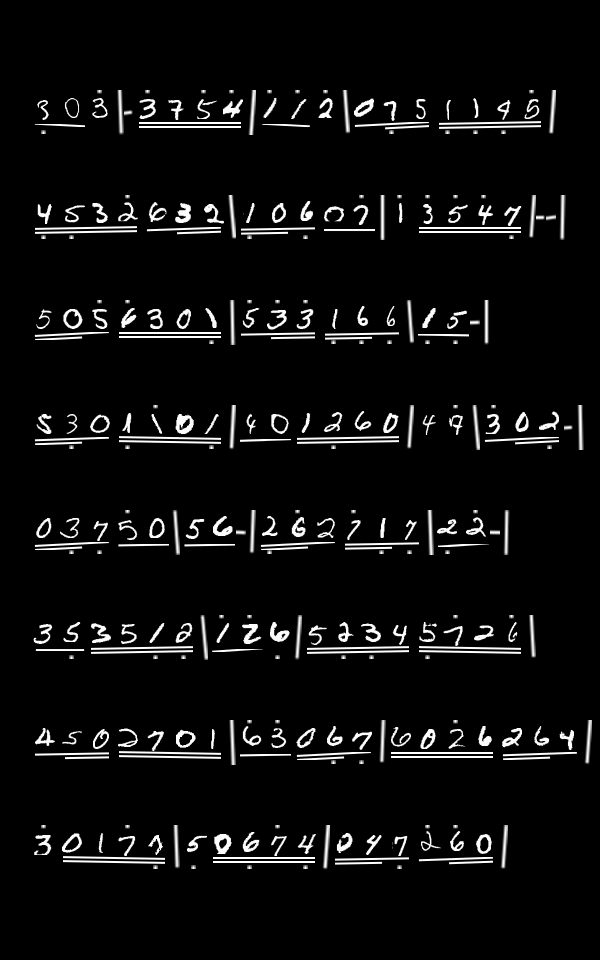 3 0 3 | - 3 7 5 4 | 1 1 2 | 0 7 5 1 1 4 5 |
4 5 3 2 6 3 2 | 1 0 6 0 7 | 1 3 5 4 7 | - - |
5 0 5 6 3 0 1 | 5 3 3 1 6 6 | 1 5 - |
5 3 0 1 1 0 1 | 4 0 1 2 6 0 4 7 | 3 0 2 - |
0 3 7 5 0 | 5 6 - | 2 6 2 7 1 7 | 2 2 - |
3 5 3 5 1 2 | 1 2 6 | 5 2 3 4 5 7 2 6 |
4 5 0 2 7 0 1 | 6 3 0 6 7 | 6 0 2 6 2 6 4 |
3 0 1 7 7 | 5 0 6 7 4 | 0 4 7 2 6 0 |